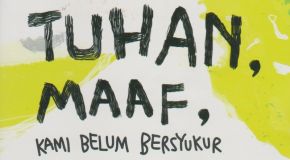 TUHAN,
MAAF,
KAMI BELUM BERSYUKUR